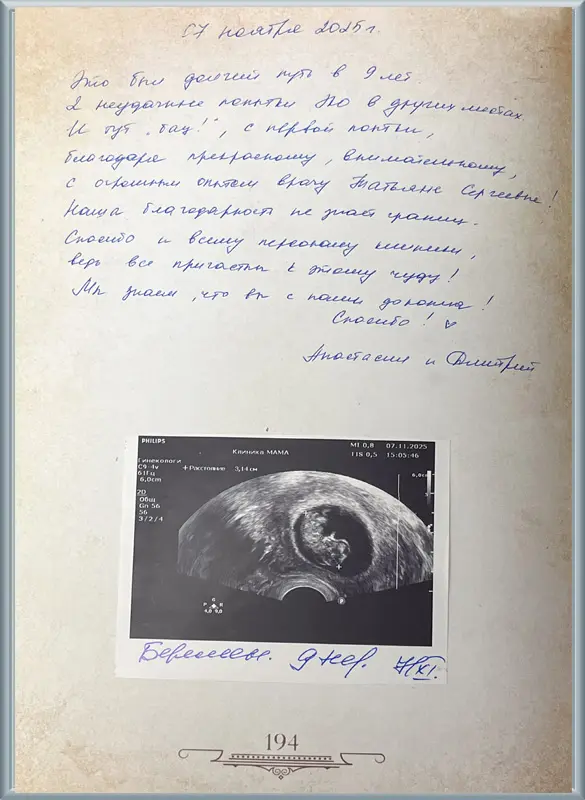 07 ноября 2025 г.
Это был долгий путь в 9 лет.
2 неудачные попытки ЭКО в других местах.
И тут „бац!“, с первой попытки,
благодаря прекрасному, внимательному,
с огромным опытом врачу Татьяне Сергеевне!
Наша благодарность не знает границ.
Спасибо и всему персоналу клиники,
ведь все причастны к этому чуду!
Мы знаем, что вы с нами до конца!
Спасибо! ♡
Анастасия и Дмитрий
PHILIPS
MI 0,8 07.11.2025
Клиника МАМА
TIS 0,5 15:05:46
Гинекологи
C9-4v
+ Расстояние 3,14 см
61Гц
6,0cm
6,0см
2D
Общ
Gn 56
56
3/2/4
G
P R
4,0 9,0
P
Беременн. 9 нед. 7/XI.
194